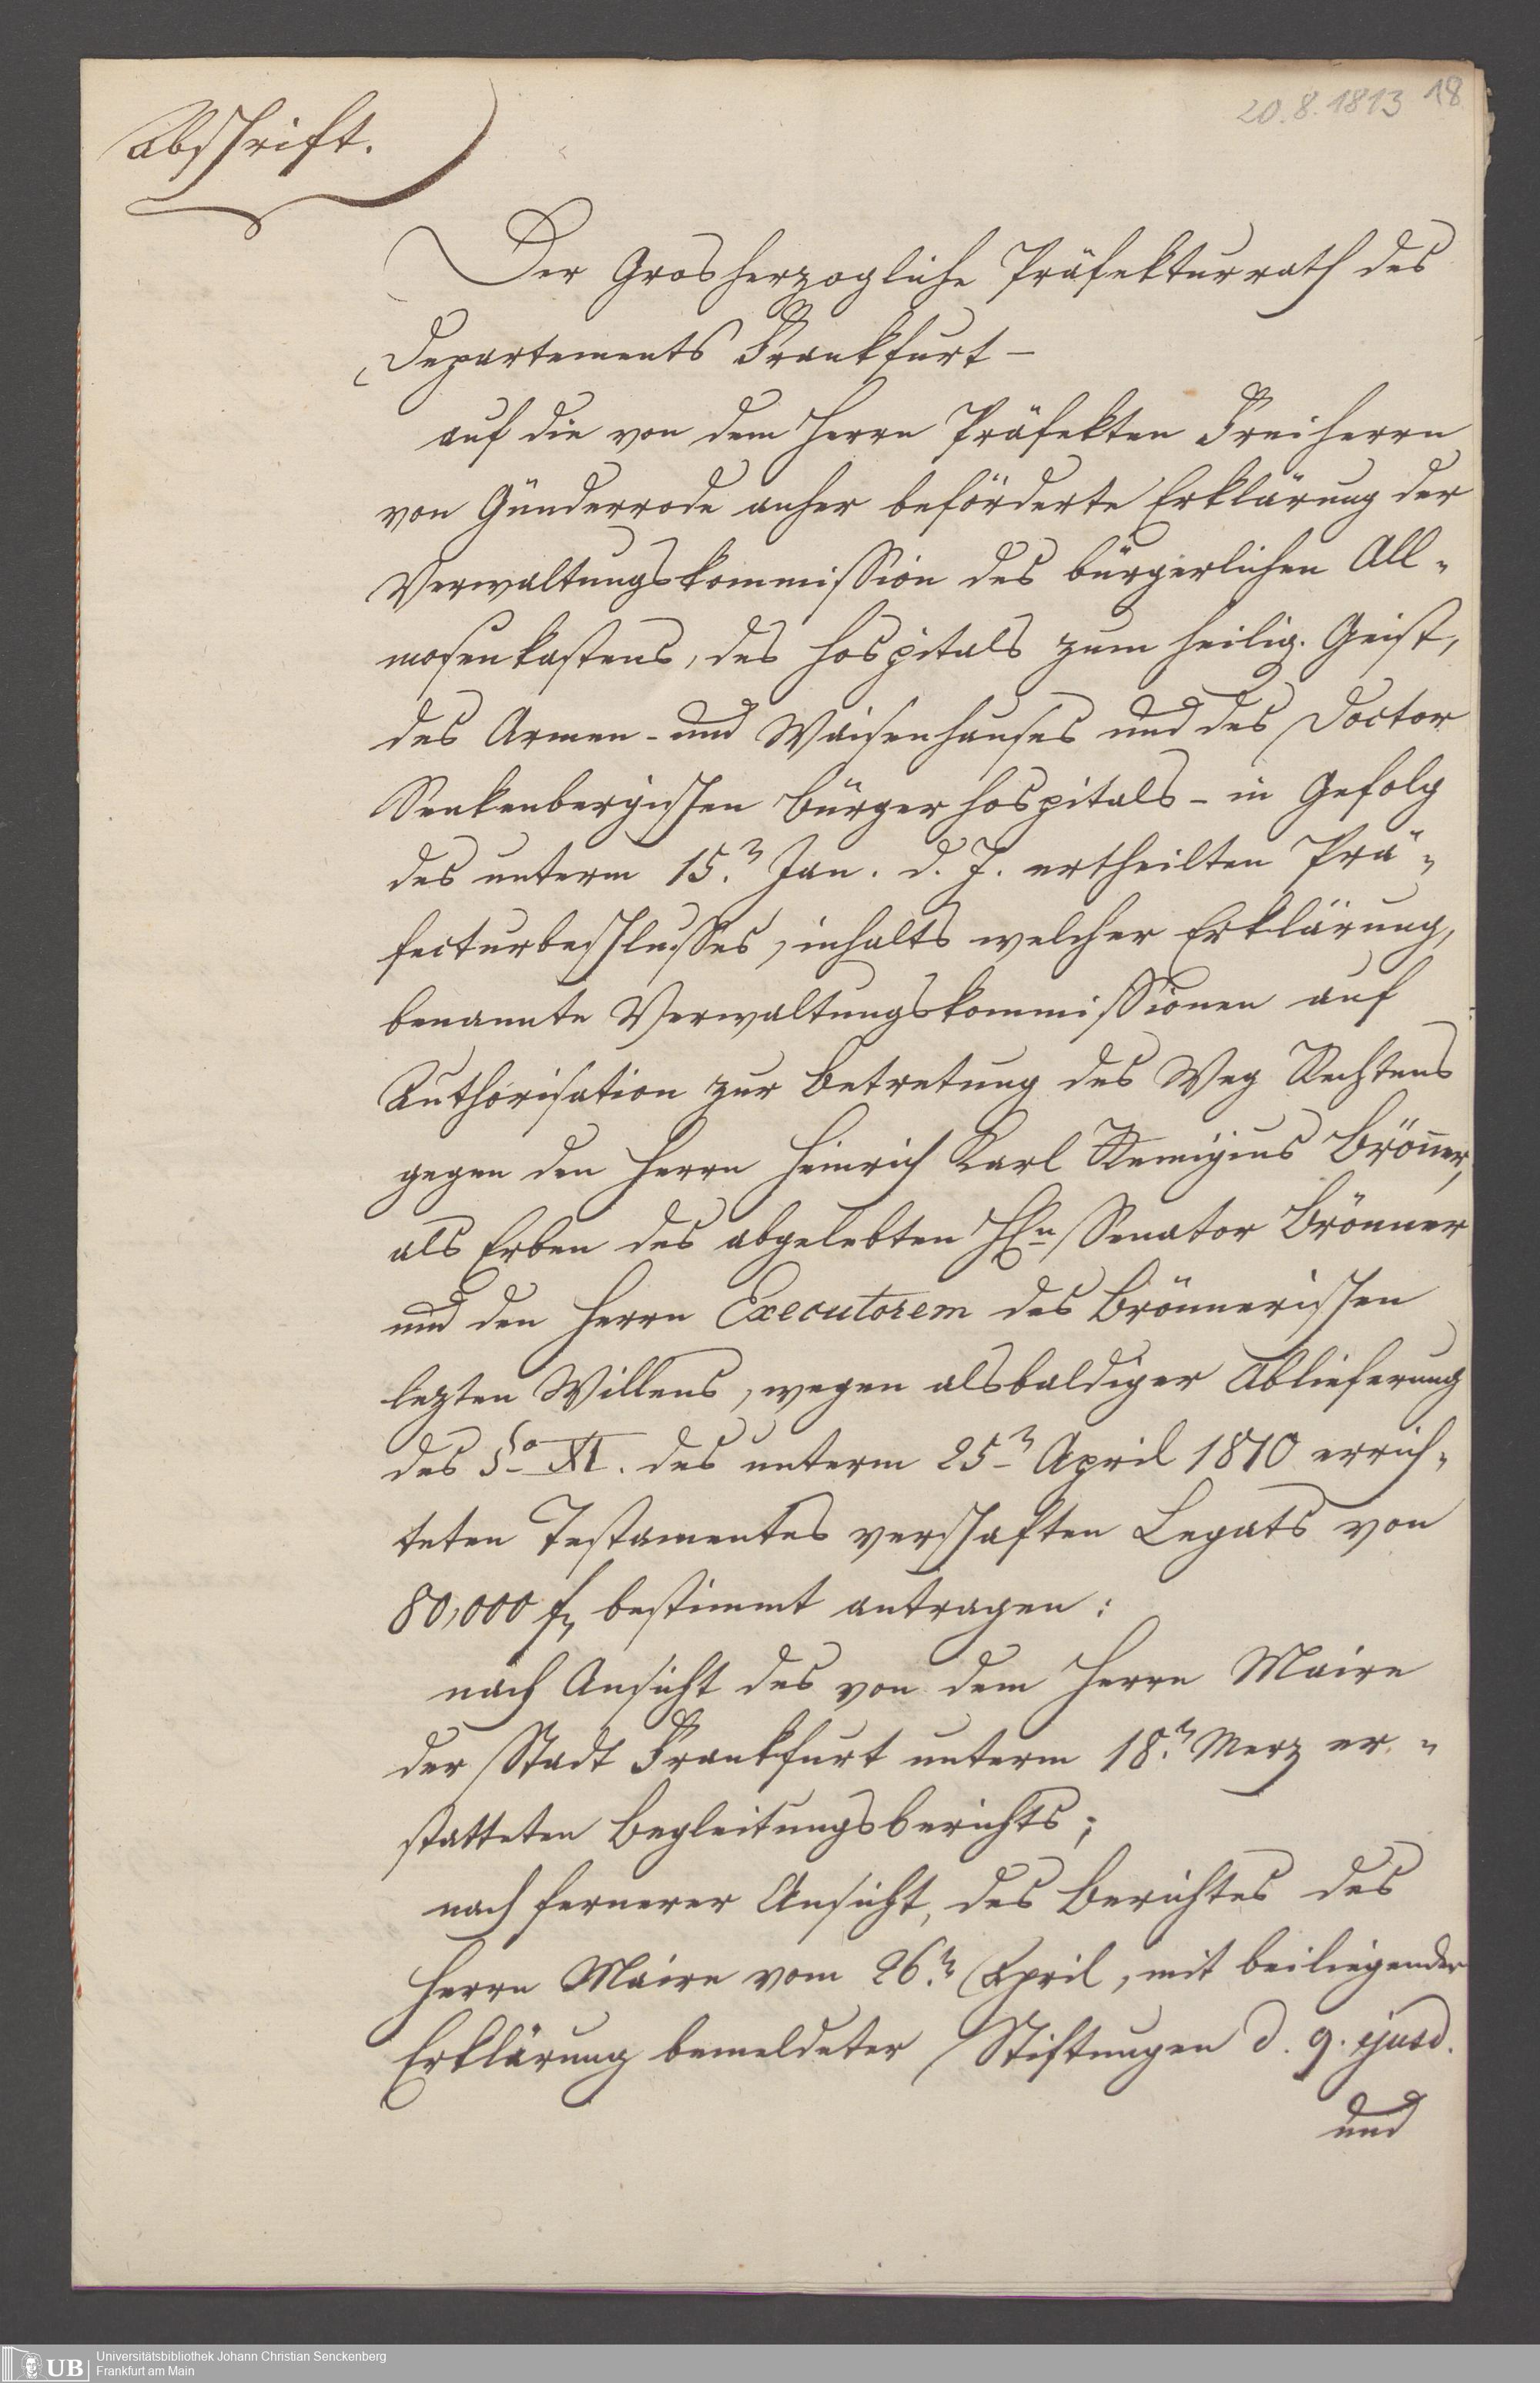 20.8.1813 18
Abschrift.
Der Grosherzogliche Präfekturrath des
Departements Frankfurt –
auf die von dem Herrn Präfekten Freiherrn
von Günderrode anher beförderte Erklärung der
Verwaltungskommission des bürgerlichen All„
mosenkastens, des Hospitals zum heilig. Geist,
des Armen- und Waisenhauses und des Doctor
Senkenbergischen Bürgerhospitals – in Gefolg
des unterm 15.n Jan. d. J. ertheilten Prä„
fecturbeschlusses, inhalts welcher Erklärung,
benannte Verwaltungskommissionen auf
Authorisation zur Betretung des Weg Rechtens
gegen den Herrn Heinrich Karl Remigius Brön̄er,
als Erben des abgelebten Hn Senator Brönner
und den Herrn Executorem des Brönnerischen
lezten Willens, wegen alsbaldiger Ablieferung
des §o XI. des unterm 25n April 1810 errich„
teten Testamentes verschaften Legats von
80,000 f, bestimmt antragen:
nach Ansicht des von dem Herrn Maire
der Stadt Frankfurt unterm 18.n Merz er„
statteten Begleitungsberichts;
nach fernerer Ansicht, des Berichtes des
Herrn Maire vom 26.n April, mit beiliegender
Erklärung bemeldeter Stiftungen d. 9. ejusd.
und
UB Universitätsbibliothek Johann Christian Senckenberg
Frankfurt am Main